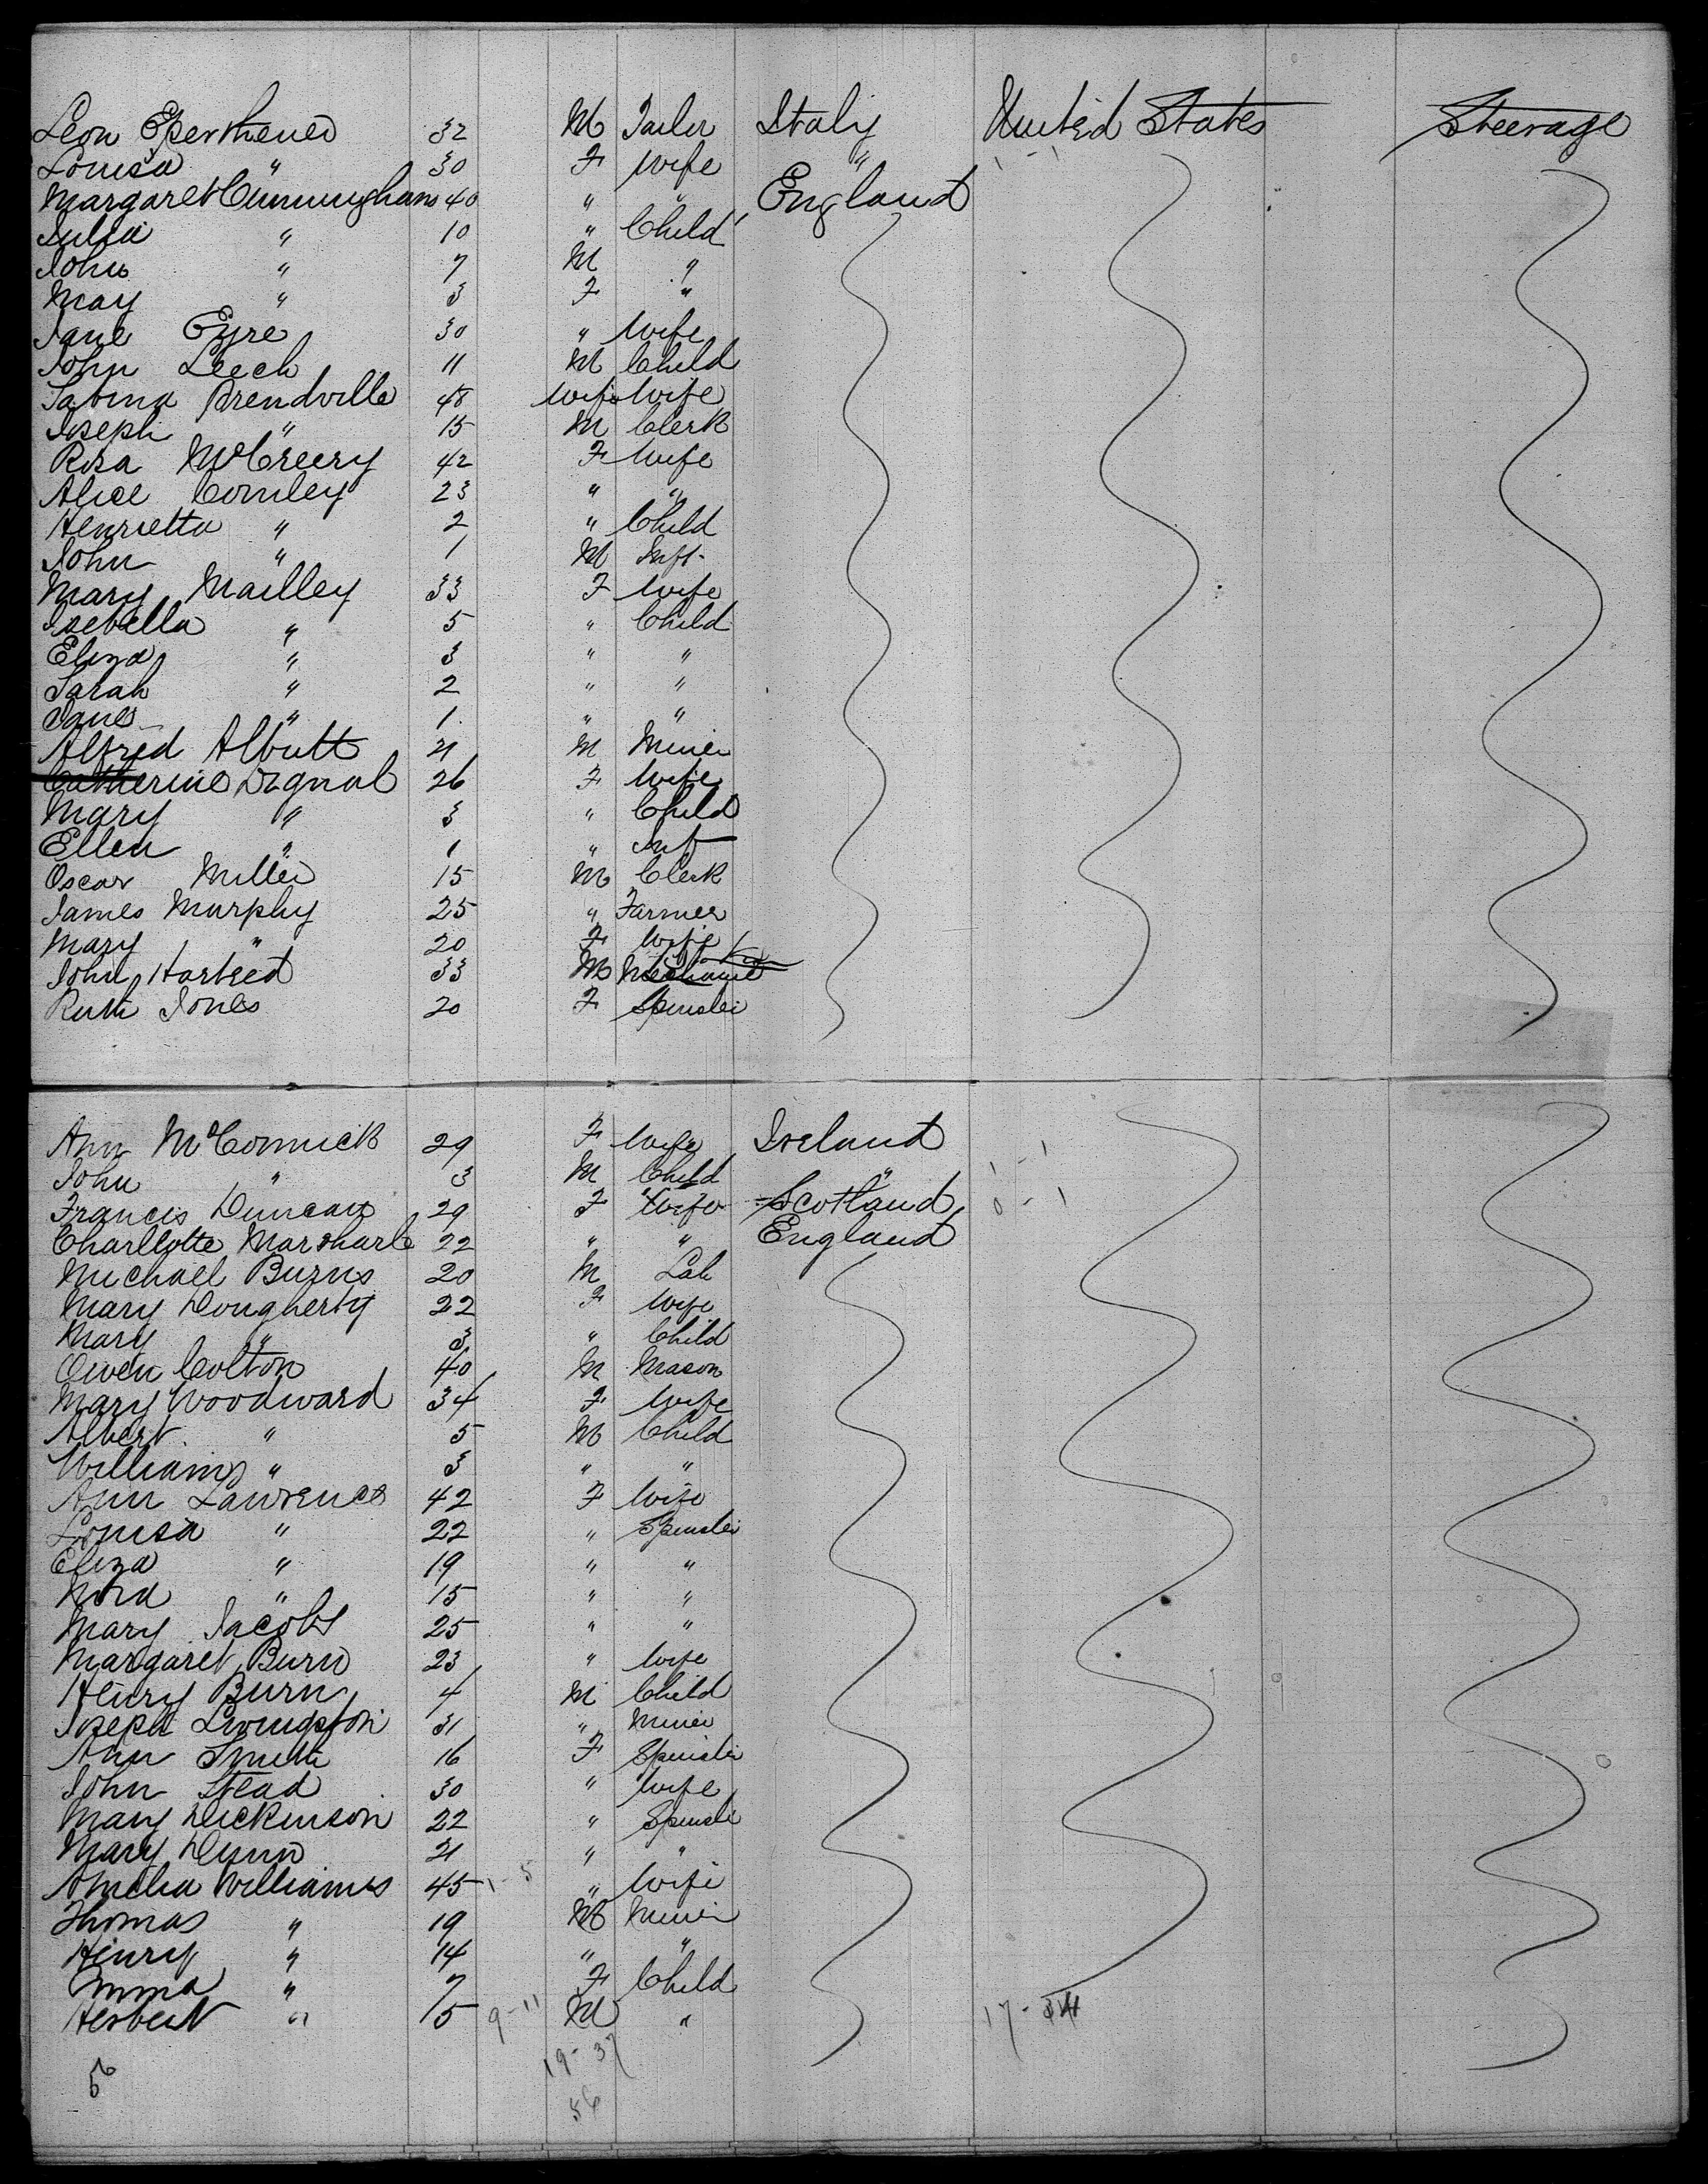 Leon Eperthener 32 M Tailor Italy United States Steerage
Louisa " 30 F Wife "
Margaret Cunningham 40 " " England
Julia " 10 " Child
John " 7 M "
May " 3 F "
Jane Eyre 30 " Wife
John Leech 11 M Child
Sabina Brendville 48 Wife Wife
Joseph " 15 M Clerk
Rosa McCreery 42 F Wife
Alice Comley 23 " "
Henrietta " 2 " Child
John " 1 M Inft.
Mary Mailley 33 F Wife
Isebella " 5 " Child
Eliza " 3 " "
Sarah " 2 " "
Jane " 1 " "
Alfred Albutt 21 M Miner
Catherine Dignal 26 F Wife
Mary " 3 " Child
Ellen " 1 " Inft
Oscar Miller 15 M Clerk
James Murphy 25 " Farmer
Mary " 20 F Wife
John 33 M Mechanic
Ruth Jones 20 F Spinster
Ann McCormick 29 F Wife Ireland
John " 3 M Child "
Francis Duncan 29 F Wife Scotland
Charllotte Marsharl 22 " " England
Michael Burns 20 M Lab
Mary Dougherty 22 F Wife
Mary " 3 " Child
Owen Colton 40 M Mason
Mary Woodward 34 F Wife
Albert " 5 M Child
William " 3 " "
Ann Lawrence 42 F Wife
Louisa " 22 " Spinster
Eliza " 19 " "
Nora " 15 " "
Mary Jacobs 25 " "
Margaret Burn 23 " Wife
Henry Burn 4 M Child
Joseph Livingston 31 " Miner
Ann Smith 16 F Spinster
John Stead 30 " Wife
Mary Dickinson 22 " Spinster
Mary Dunn 21 " "
Amelia Williams 45 1-5 " Wife
Thomas " 19 M Miner
Henry " 14 " "
Emma " 7 F Child
Herbert " 5 9-11 M " 17-
19-37
5 56